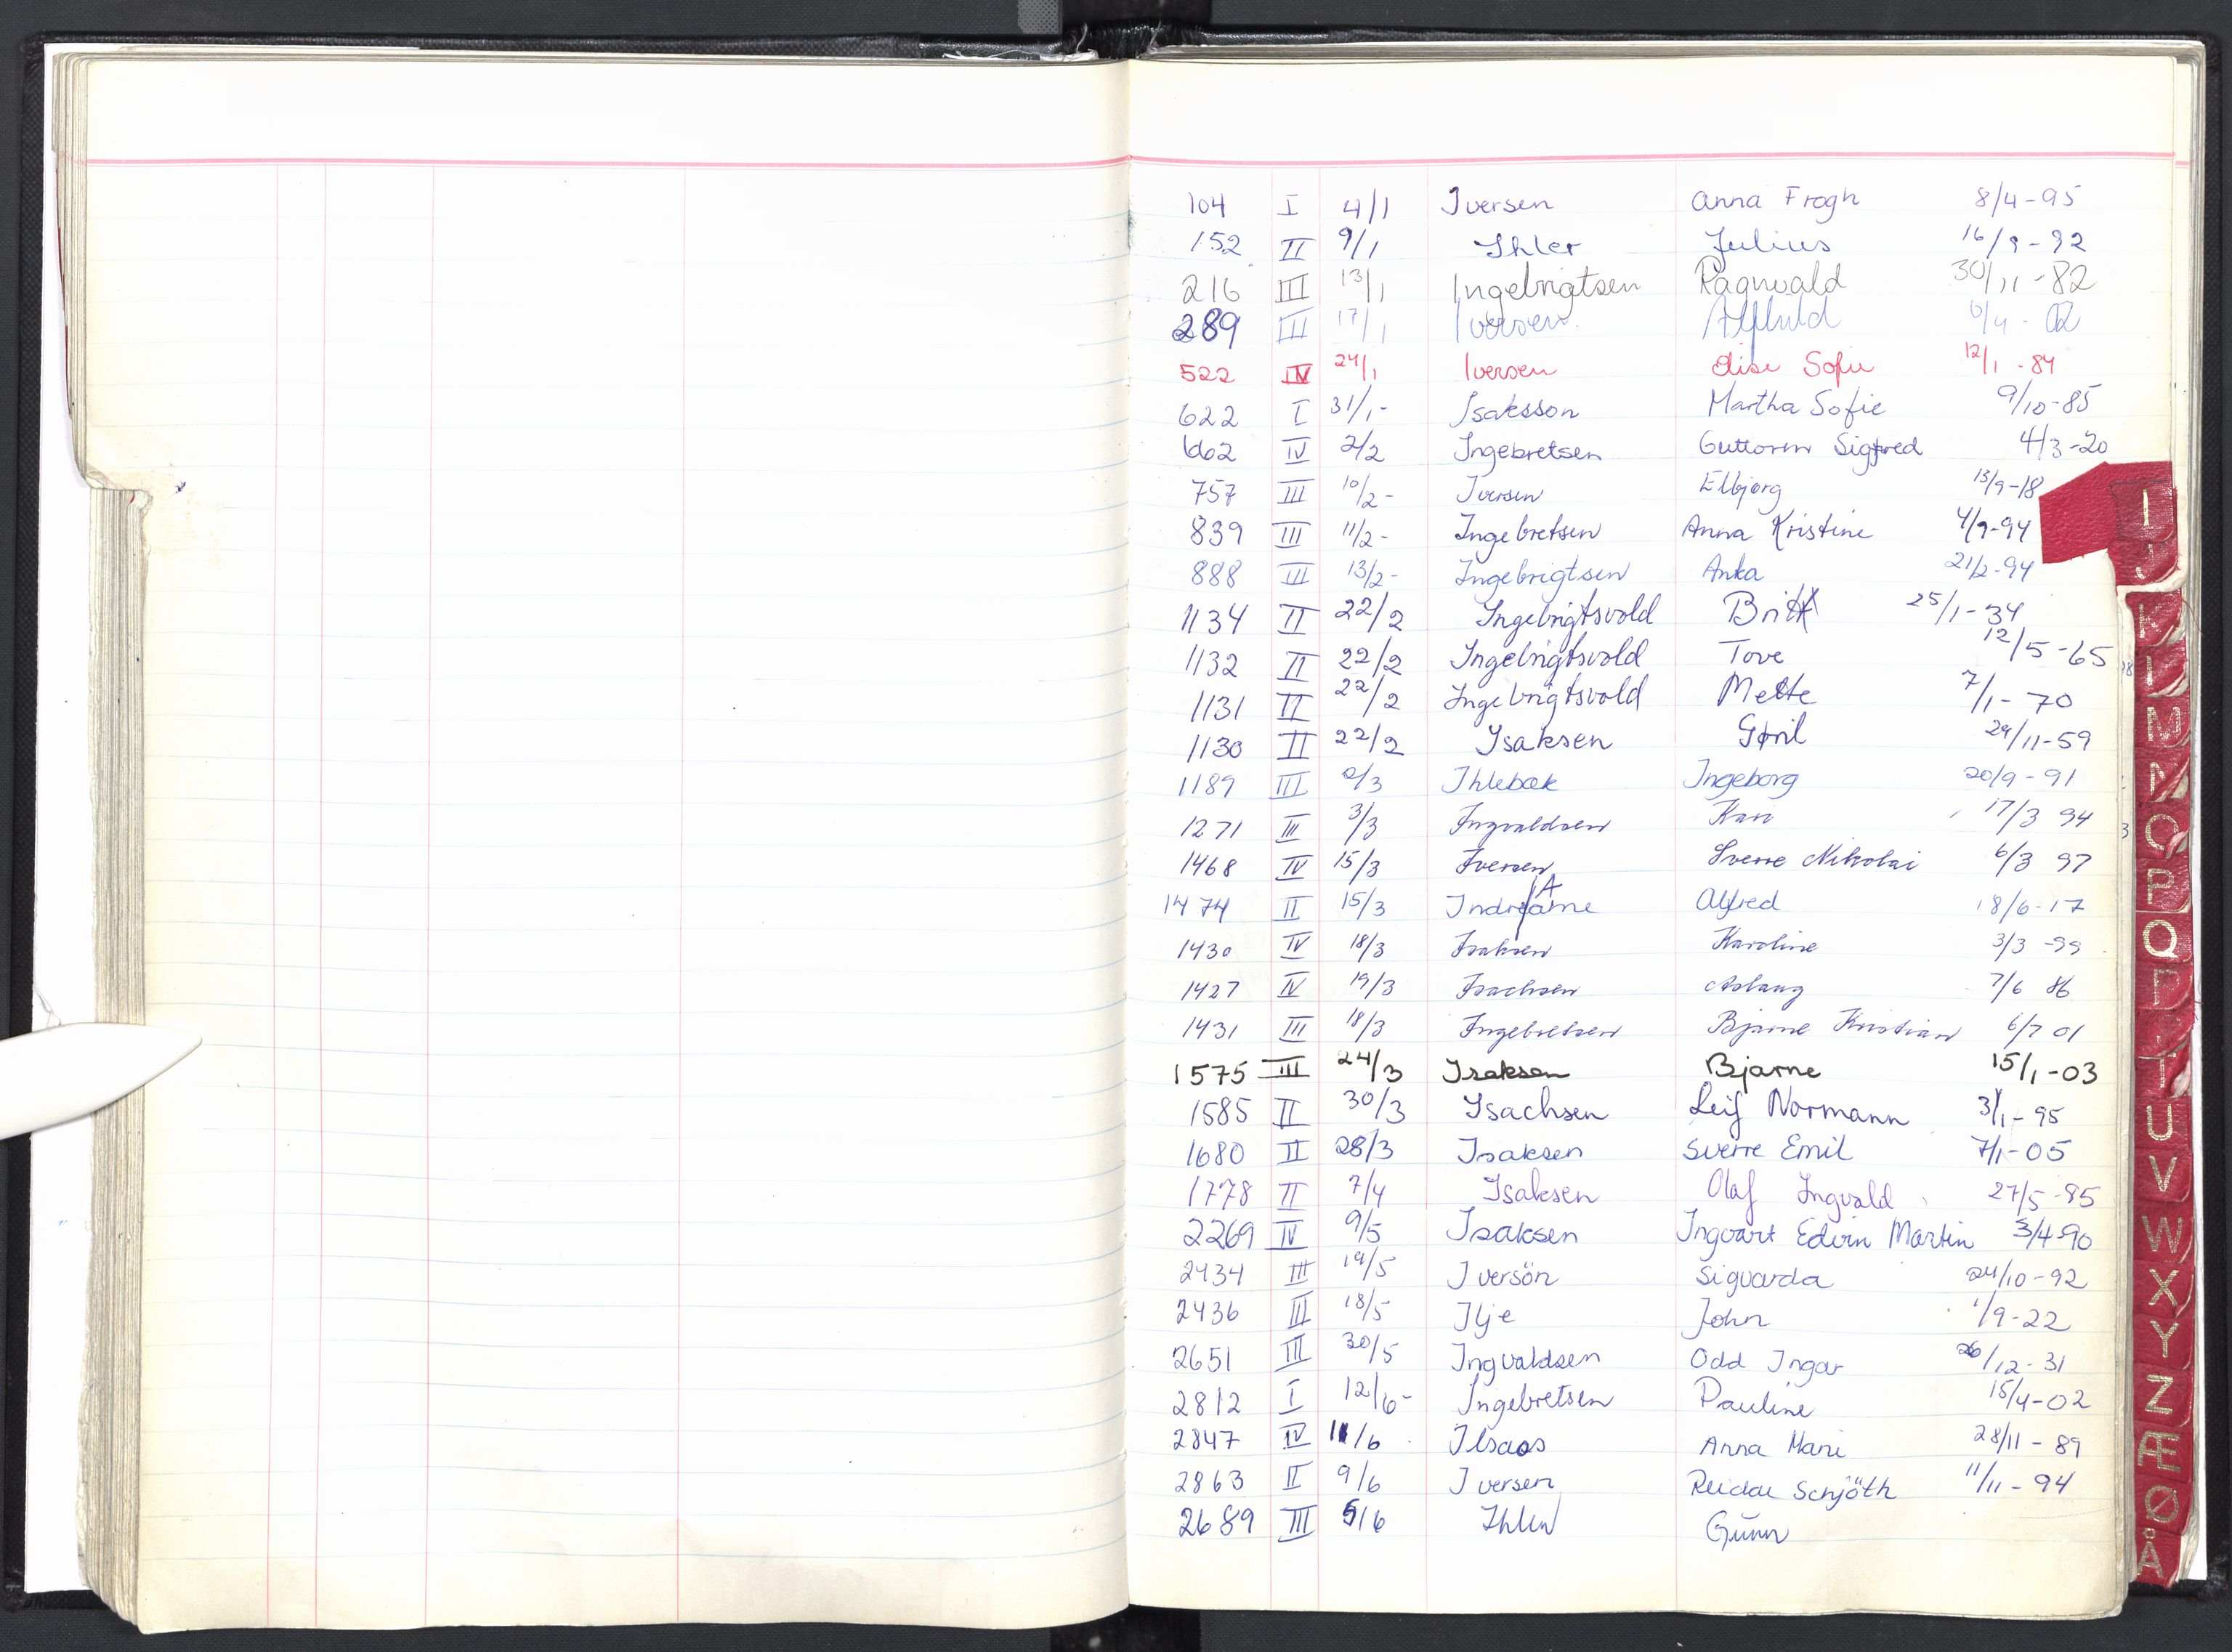 104 I 4/1 Iversen Anna Frogh 8/4-95
152 II 9/1 Ihler Julius 16/9-92
216 III 13/1 Ingebrigtsen Ragnvald 30/11-82
289 III 17/1 Iversen Alfhild 6/4-02
522 IV 24/1 Iversen Elise Sofie 12/1-84
622 I 31/1- Isaksson Martha Sofie 9/10-85
662 IV 2/2 Ingebretsen Guttorm Sigfred 4/3-20
757 III 10/2- Iversen Elbjørg 13/9-18
839 III 11/2- Ingebretsen Anna Kristine 4/9-94
888 III 13/2- Ingebrigtsen Anka 21/2-94
1134 II 22/2 Ingebrigtsvold Britt 25/1-34
1132 II 22/2 Ingebrigtsvold Tove 12/5-65
1131 II 22/2 Ingebrigtsvold Mette 7/1-70
1130 II 22/2 Isaksen Gøril 29/11-59
1189 III 2/3 Ihlebæk Ingeborg 20/9-91
1271 III 3/3 Ingvaldsen Kari 17/3 94
1468 IV 15/3 Iversen Sverre Nikolai 6/3 97
1474 II 15/3 Alfred 18/6-17
1430 IV 18/3 Isaksen Karoline 3/3-99
1427 IV 19/3 Isachsen Aslaug 7/6 86
1431 III 18/3 Ingebretsen Bjarne Kristian 6/7 01
1575 III 24/3 Isaksen Bjarne 15/1-03
1585 II 30/3 Isachsen Leif Normann 31/1-95
1680 II 28/3 Isaksen Sverre Emil 7/1-05
1778 II 7/4 Isaksen Olaf Ingvald 27/5-85
2269 IV 9/5 Isaksen Ingvart Edvin Martin 3/4-90
2434 III 19/5 Iversön Sigvarda 24/10-92
2436 III 18/5 Ilje John 1/9-22
2651 III 30/5 Ingvaldsen Odd Ingar 26/12-31
2812 I 12/6- Ingebretsen Pauline 15/4-02
2847 IV 11/6 Ilsaas Anna Marie 28/11-89
2863 II 9/6 Iversen Reidar Schjöth 11/11-94
2689 III 5/6 Ihlen Gunn
I
J
K
L
M
N
O
P
Q
R
T
U
V
W
X
Y
Z
Æ
Ø
Å